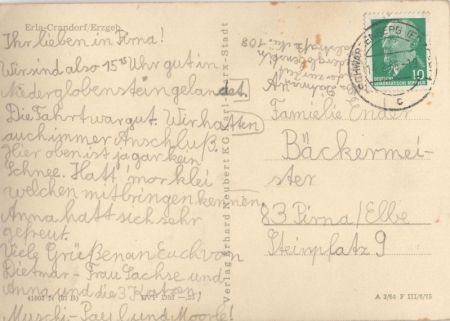 Erla-Crandorf/Erzgeb.
Ihr lieben in Pirna!
Wir sind also 15 Uhr gut in
Niederglobenstein gelandet.
Die Fahrt war gut. Wir hatten
auch immer Anschluß.
Hier oben ist ja gar kein
Schnee. Hätt' mor klei
welchen mitbringen kennen.
Anna hat sich sehr
gefreut.
Viele Grüße an Euch von
Dietmar - Frau Sachse und
Anna und die 3 Katzen,
Muschi - Paul und Moorle!
Verlag Erhard Neubert KG, Karl-Marx-Stadt
DEUTSCHE
DEMOKRATISCHE REPUBLIK
10
c
An
Familie Ender
Bäckermei-
ster
83 Pirna/Elbe
Steinplatz 9
A 3/64 F III/6/15